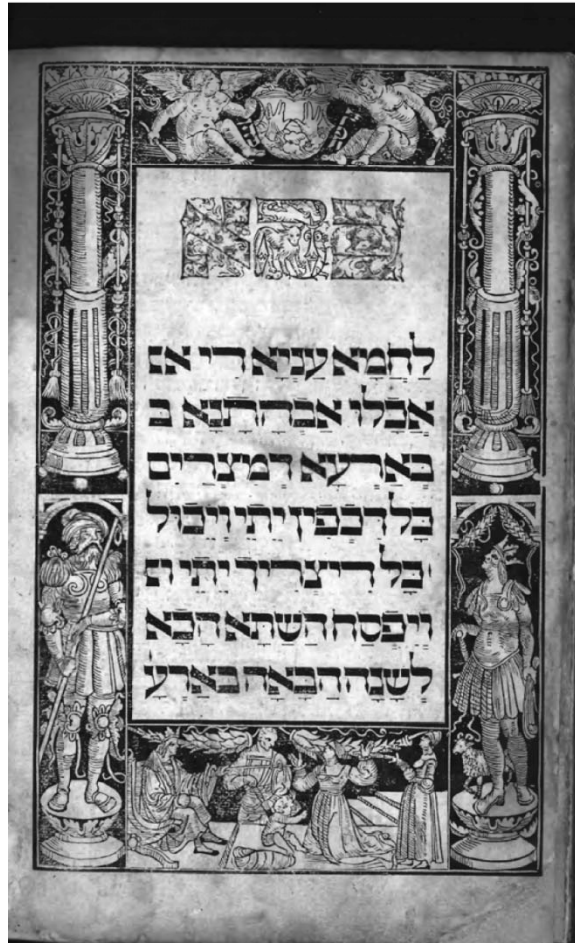 כהא
לַחְמָא עַנְיָא דִי אכ
אֲכָלוּ אֲבָהָתָנָא ב
בְּאַרְעָא דְמִצְרַיִם
כָּל דִכְפִין יֵתֵי וְיֵכוּל
וכָל דִיצְרִיךְ יֵתֵי
וְיִפְסַח הָשַתָּא הָכָא
לְשָנָה הַבָּאָה בְּאַרְעָ